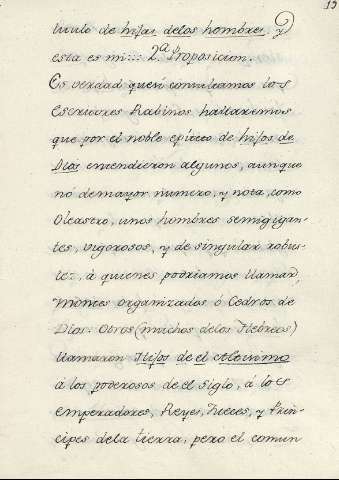 13
titulo de hijas de los hombres. y
esta es mi::: 2ª Proposicion.
Es verdad que si consultamos los
Escritores Rabinos hallaremos
que por el noble epiteto de hijos de
Dios entendieron algunos, aunque
nó de mayor numero, y nota, como
Oleastro, unos hombres semigigan-
tes, vigorosos, y de singular robus-
tez, á quienes podriamos llamar,
montes organizados ò Cedros de
Dios: Otros (muchos delos Hebreos)
llamaron Hijos de el Altissimo
á los poderosos de el Siglo, á los
Emperadores, Reyes, Jueces, y Prin-
cipes dela tierra, pero el comun